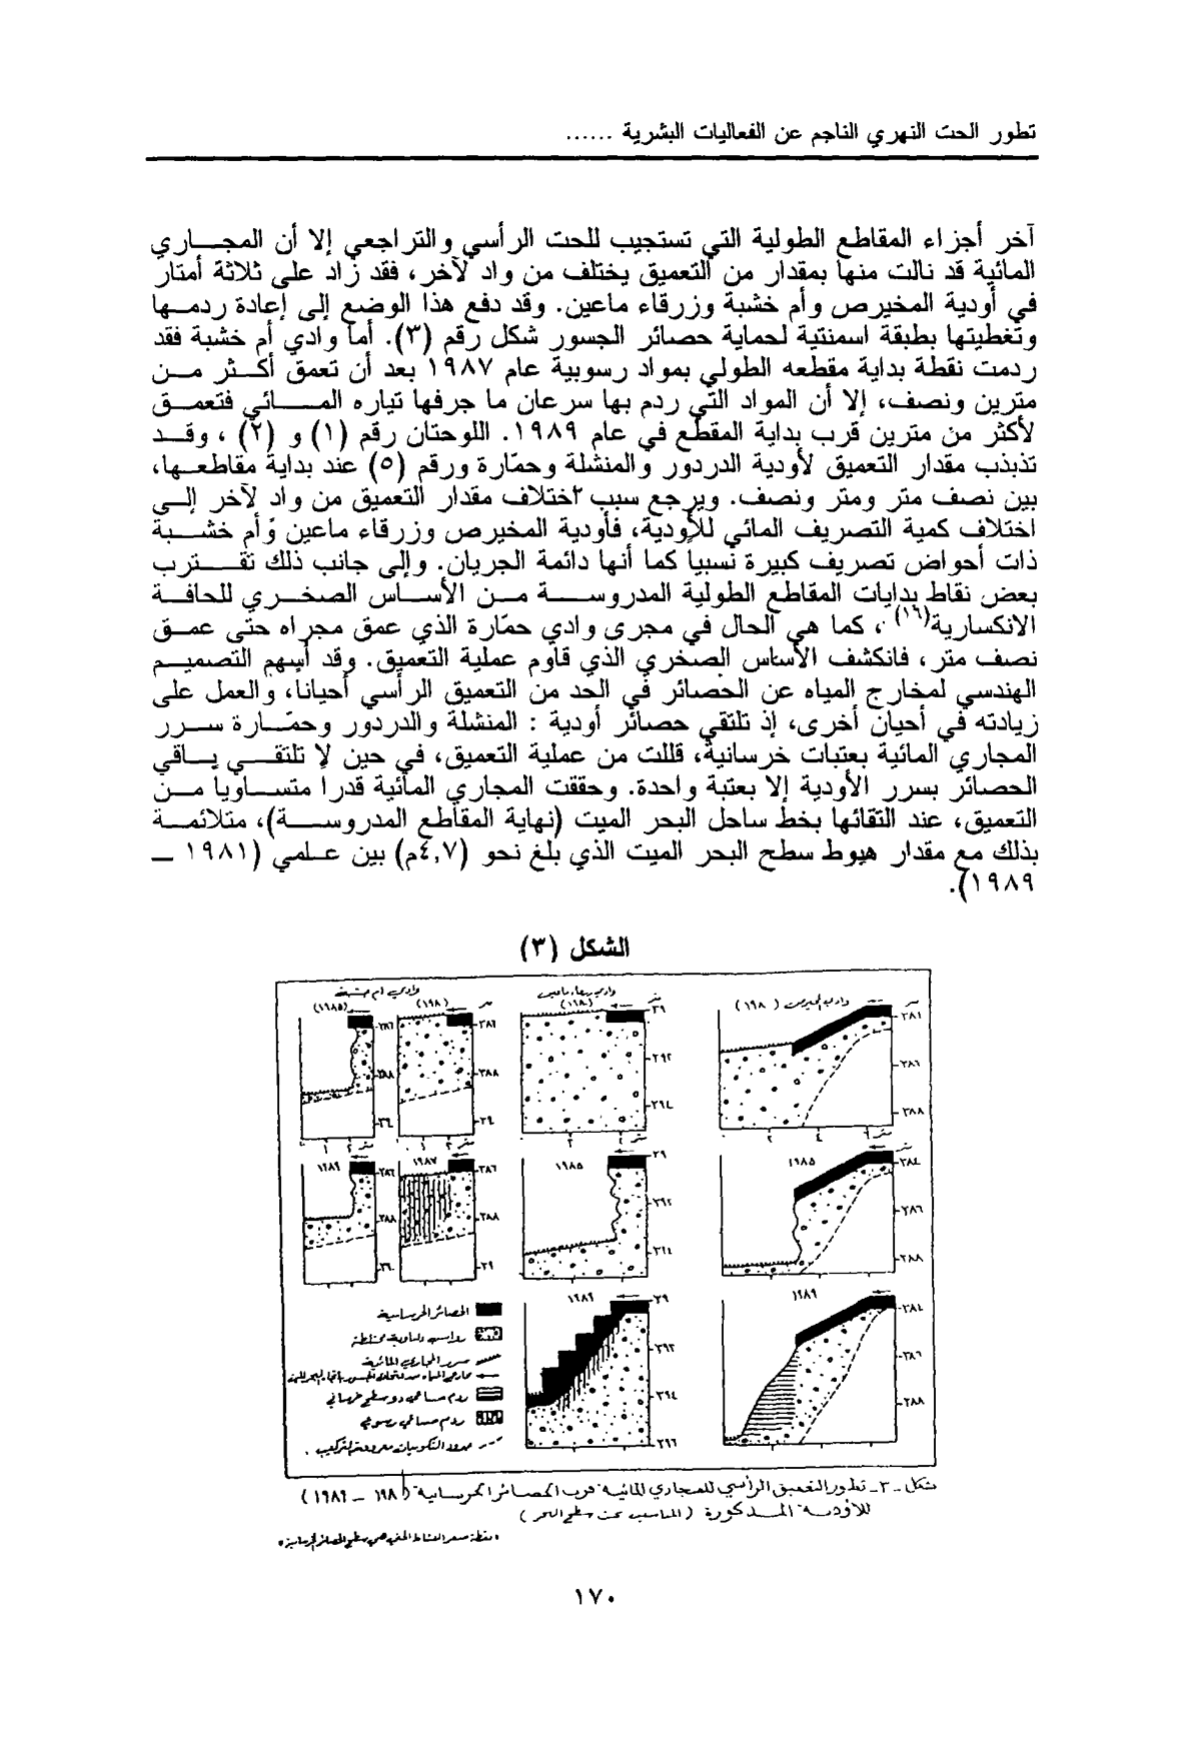 تطور الحت النهري الناجم عن الفعاليات البشرية ......
آخر أجزاء المقاطع الطولية التي تستجيب للحت الرأسي والتراجعي إلا أن المجاري
المائية قد نالت منها بمقدار من التعميق يختلف من واد لآخر، فقد زاد على ثلاثة أمتار
في أودية المخيرص وأم خشبة وزرقاء ماعين. وقد دفع هذا الوضع إلى إعادة ردمها
وتغطيتها بطبقة اسمنتية لحماية حصائر الجسور شكل رقم (٣). أما وادي أم خشبة فقد
ردمت نقطة بداية مقطعه الطولي بمواد رسوبية عام ١٩٨٧ بعد أن تعمق أكثر من
مترين ونصف، إلا أن المواد التي ردم بها سرعان ما جرفها تياره المائي فتعمق
لأكثر من مترين قرب بداية المقطع في عام ١٩٨٩. اللوحتان رقم (١) و (٢) ، وقد
تذبذب مقدار التعميق لأودية الدردور والمنشلة وحمّارة ورقم (٥) عند بداية مقاطعها،
بين نصف متر ومتر ونصف. ويرجع سبب اختلاف مقدار التعميق من واد لآخر إلى
اختلاف كمية التصريف المائي للأودية، فأودية المخيرص وزرقاء ماعين وأم خشبة
ذات أحواض تصريف كبيرة نسبياً كما أنها دائمة الجريان. وإلى جانب ذلك تقترب
بعض نقاط بدايات المقاطع الطولية المدروسة من الأساس الصخري للحافة
الانكسارية(١٦) ، كما هي الحال في مجرى وادي حمّارة الذي عمق مجراه حتى عمق
نصف متر، فانكشف الأساس الصخري الذي قاوم عملية التعميق. وقد أسهم التصميم
الهندسي لمخارج المياه عن الحصائر في الحد من التعميق الرأسي أحيانا، والعمل على
زيادته في أحيان أخرى، إذ تلتقي حصائر أودية : المنشلة والدردور وحمّارة سرر
المجاري المائية بعتبات خرسانية، قللت من عملية التعميق، في حين لا تلتقي باقي
الحصائر بسرر الأودية إلا بعتبة واحدة. وحققت المجاري المائية قدرا متساويا من
التعميق، عند التقائها بخط ساحل البحر الميت (نهاية المقاطع المدروسة)، متلائمة
بذلك مع مقدار هبوط سطح البحر الميت الذي بلغ نحو (٤,٧م) بين عامي (١٩٨١ –
١٩٨٩).
الشكل (٣)
وادي أم خشبة
(١٩٨٥)
١٩٨٩
١٩٨٧
١٩٨٥
١٩٨٩
١٩٨٥
١٩٨٩
الحصائر الخرسانية
سرر المجاري المائية
شكل -٣- تطور التعميق الرأسي للمجاري المائية قرب الحصائر الخرسانية
للأودية المذكورة (المناسيب تحت سطح البحر)
١٧٠